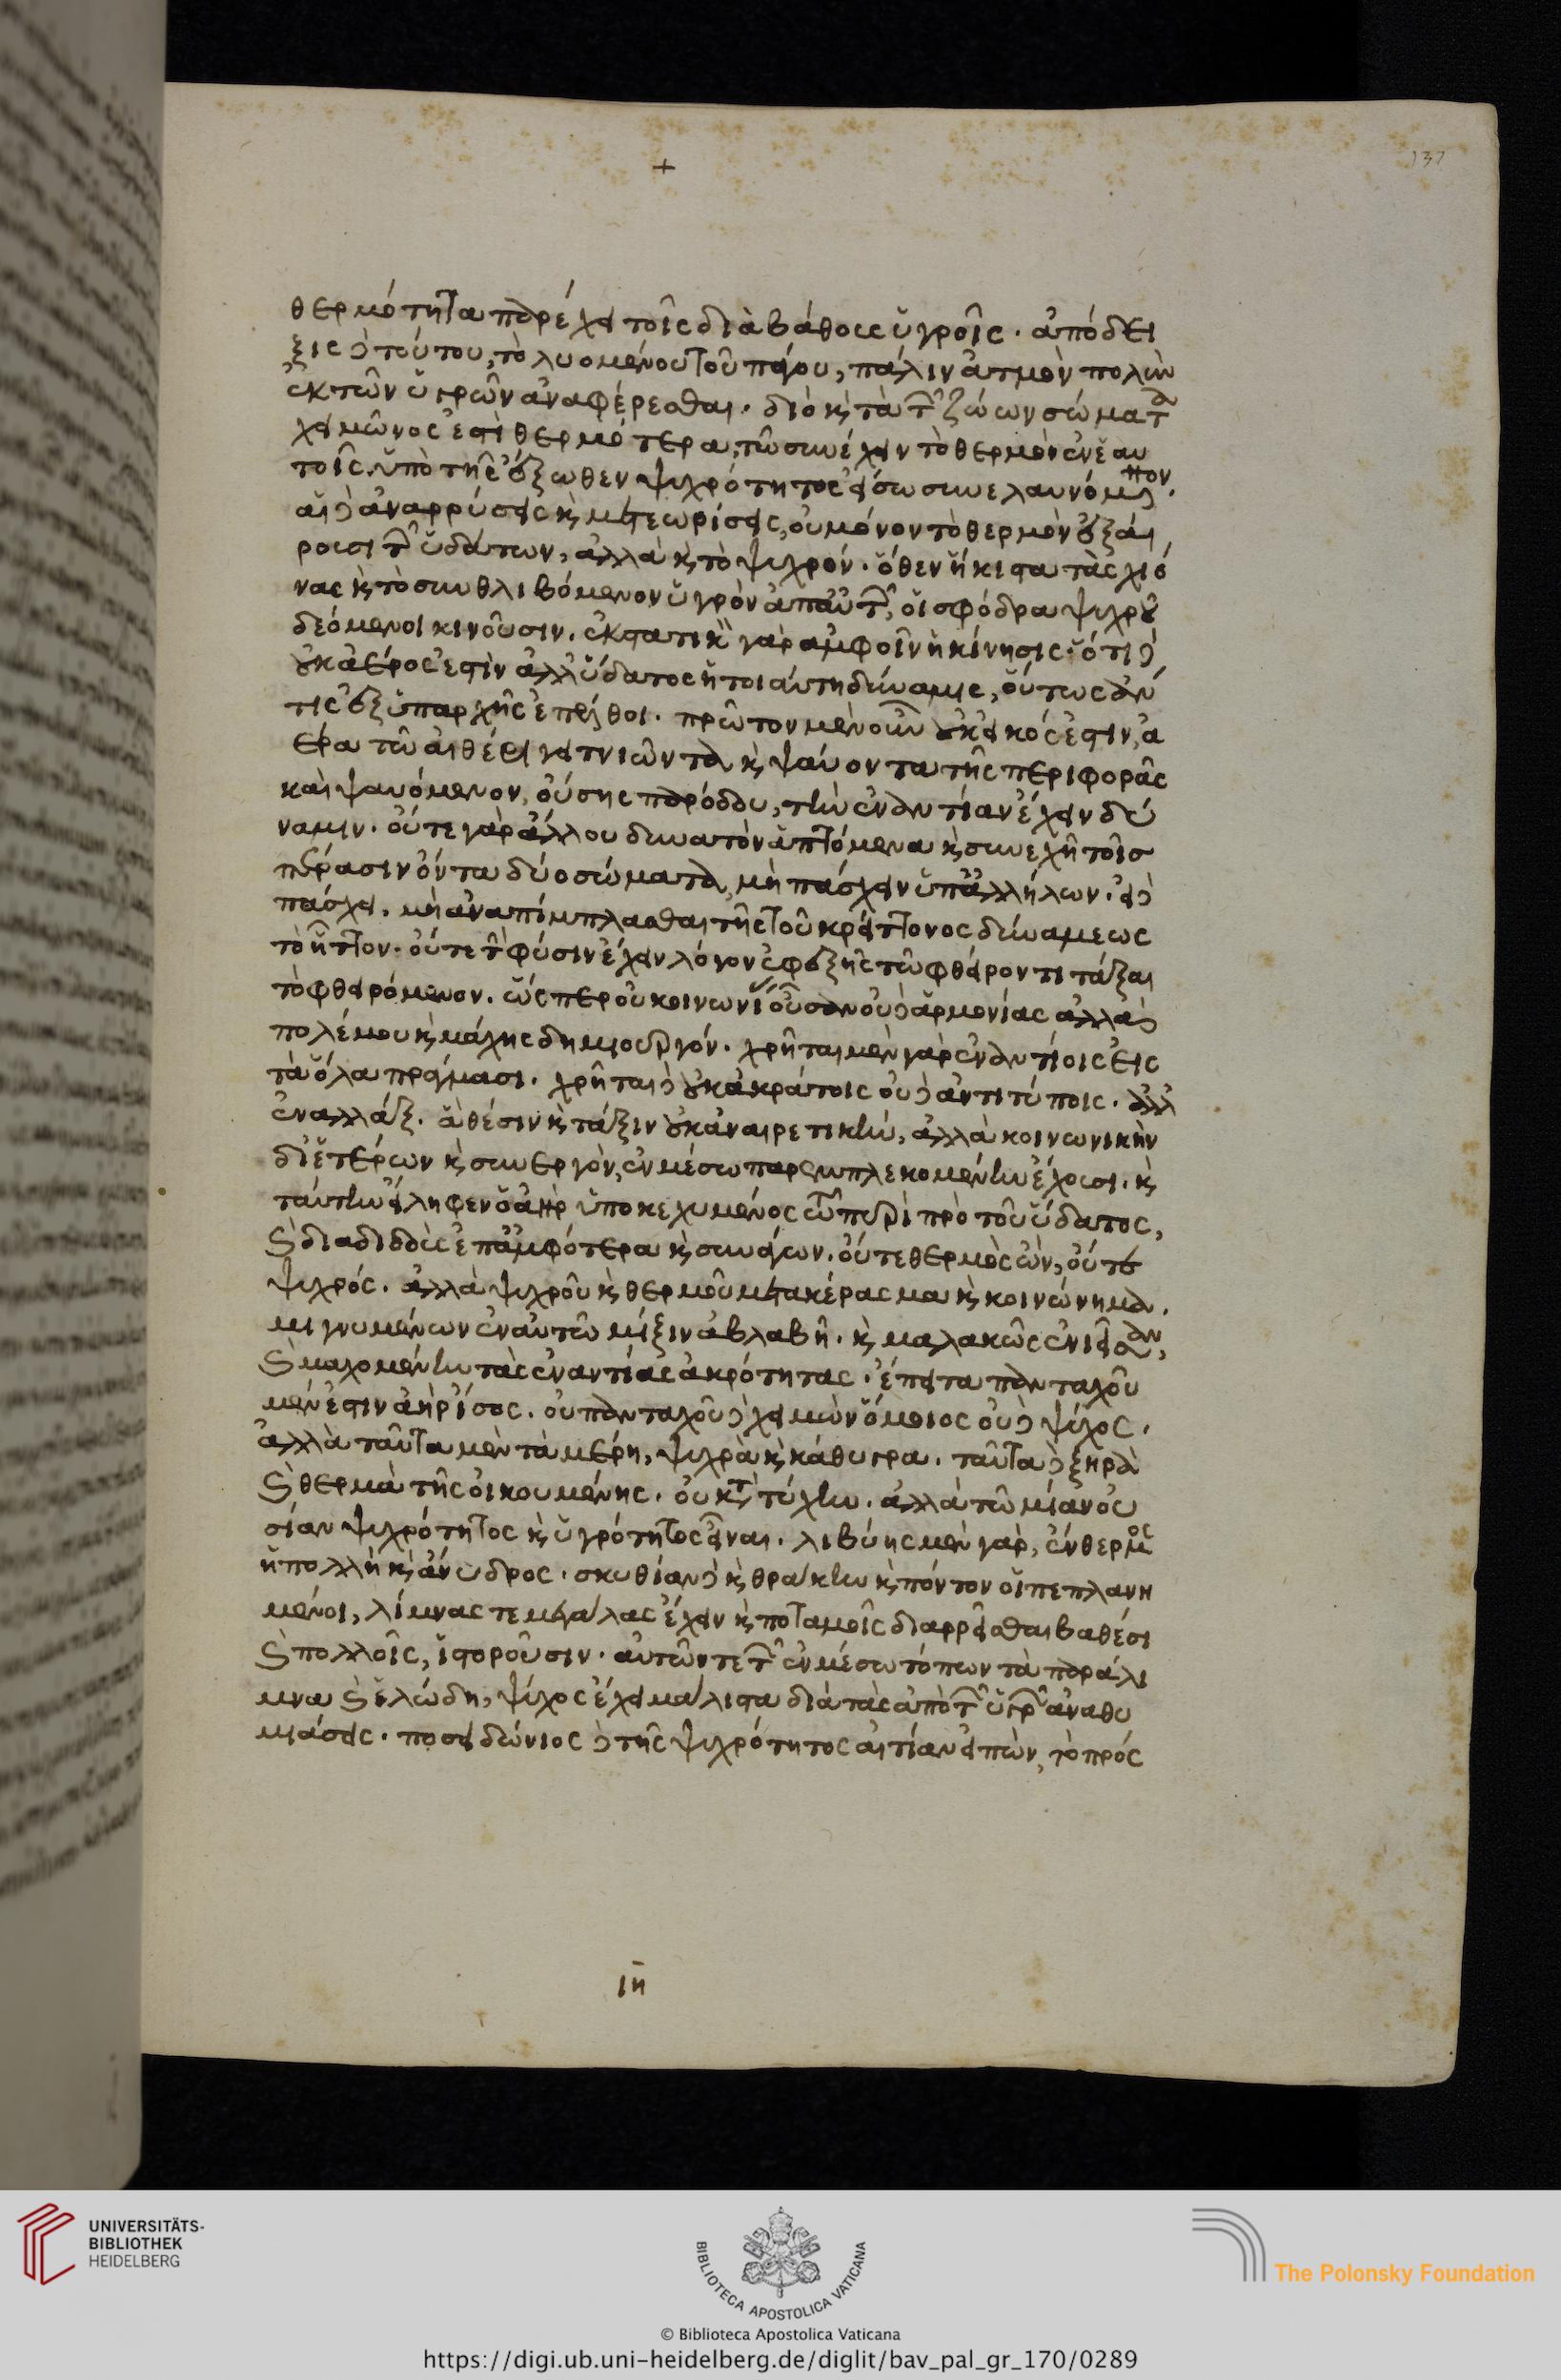 +
137
θερμότητα παρέχει τοῖς διὰ βάθους ὑγροῖς. ἀπόδει
ξις δὲ τούτου, τὸ λυομένου τοῦ πάγου, πάλιν ἀτμὸν πολὺν
ἐκ τῶν ὑγρῶν ἀναφέρεσθαι. διὸ καὶ τὰ τῶν ζώων σώματα
χειμῶνος ἐστὶ θερμότερα, τῷ συνέχειν τὸ θερμὸν ἐν ἑαυ
τοῖς ὑπὸ τῆς ἔξωθεν ψυχρότητος εἴσω συνελαυνόμενον.
αἱ δὲ ἀναρρύσεις καὶ μετεωρίσεις, οὐ μόνον τὸ θερμὸν ἐξαί
ρουσι τῶν ὑδάτων, ἀλλὰ καὶ τὸ ψυχρόν. ὅθεν ἥκιστα τὰς χιό
νας καὶ τὸ συνθλιβόμενον ὑγρὸν ἀπ' αὐτῶν, οἱ σφόδρα ψυχροῦ
δεόμενοι κινοῦσιν. ἐκστατικὴ γὰρ ἀμφοῖν ἡ κίνησις. ὅτι δὲ
οὐκ ἀέρος ἐστὶν ἀλλ' ὕδατος ἡ τοιαύτη δύναμις, οὕτως ἄν
τις ἐξ ὑπαρχῆς ἐπέλθοι. πρῶτον μὲν οὖν οὐκ εἰκός ἐστιν, ἀ
έρα τῷ αἰθέρι γειτνιῶντα καὶ ψαύοντα τῆς περιφορᾶς
καὶ ψαυόμενον, οὔσης παρόδου, τὴν ἐναντίαν ἔχειν δύ
ναμιν. οὔτε γὰρ ἄλλου δυνατὸν ἁπτόμενα καὶ συνεχῆ τοῖς
πέρασιν ὄντα δύο σώματα, μὴ πάσχειν ὑπ' ἀλλήλων. εἰ δὲ
πάσχει. μὴ ἀναπίμπλασθαι τῆς τοῦ κρείττονος δυνάμεως
τὸ ἧττον. οὔτε τὴν φύσιν ἔχειν λόγον ἐφεξῆς τῷ φθείροντι τάξαι
τὸ φθειρόμενον. ὥσπερ οὐ κοινωνίας οὖσαν οὐδὲ ἁρμονίας ἀλλὰ
πολέμου καὶ μάχης δημιουργόν. χρῆται μὲν γὰρ ἐναντίοις εἰς
τὰ ὅλα πράγμασι. χρῆται δὲ οὐκ ἀκράτοις οὐδὲ ἀντιτύποις. ἀλλ'
ἐναλλάξ. ἃ θέσιν καὶ τάξιν οὐκ ἀναιρετικὴν, ἀλλὰ κοινωνικὴν
δι' ἑτέρων καὶ συνεργὸν, ἐν μέσῳ παρεμπλεκομένην ἔχουσι. καὶ
ταύτην εἴληφεν ὁ ἀὴρ ὑποκεχυμένος τῷ πυρὶ πρὸ τοῦ ὕδατος,
καὶ διαδιδοὺς ἐπ' ἀμφότερα καὶ συνάγων. οὔτε θερμὸς ὢν, οὔτε
ψυχρός. ἀλλὰ ψυχροῦ καὶ θερμοῦ μετακέρασμα καὶ κοινώνημα.
μιγνυμένων ἐν αὐτῷ μίξιν ἀβλαβῆ. καὶ μαλακῶς ἐνιεῖσαν,
καὶ μαχομένην τὰς ἐναντίας ἀκρότητας. ἔπειτα πανταχοῦ
μὲν ἐστιν ἀὴρ ἴσος. οὐ πανταχοῦ δὲ χειμὼν ὅμοιος οὐδὲ ψῦχος.
ἀλλὰ ταῦτα μὲν τὰ μέρη, ψυχρὰ καὶ κάθυγρα. ταῦτα δὲ ξηρὰ
καὶ θερμὰ τῆς οἰκουμένης. οὐ κατὰ τύχην. ἀλλὰ τῷ μίαν οὐ
σίαν ψυχρότητος καὶ ὑγρότητος εἶναι. λιβύης μὲν γὰρ, ἔνθερμος
ἡ πολλὴ καὶ ἄνυδρος. σκυθίαν δὲ καὶ θράκην καὶ πόντον οἱ πεπλανη
μένοι, λίμνας τε μεγάλας ἔχειν καὶ ποταμοῖς διαρρεῖσθαι βαθέσι
καὶ πολλοῖς, ἱστοροῦσιν. αὐτῶν τε τῶν ἐν μέσῳ τόπων τὰ παράλι
μνα καὶ ἑλώδη, ψῦχος ἔχει μάλιστα διὰ τὰς ἀπὸ τῶν ὑγρῶν ἀναθυ
μιάσεις. ποσειδώνιος δὲ τῆς ψυχρότητος αἰτίαν εἰπὼν, τὸ πρός
ιη
UNIVERSITÄTS-
BIBLIOTHEK
HEIDELBERG
BIBLIOTECA APOSTOLICA VATICANA
The Polonsky Foundation
© Biblioteca Apostolica Vaticana
https://digi.ub.uni-heidelberg.de/diglit/bav_pal_gr_170/0289